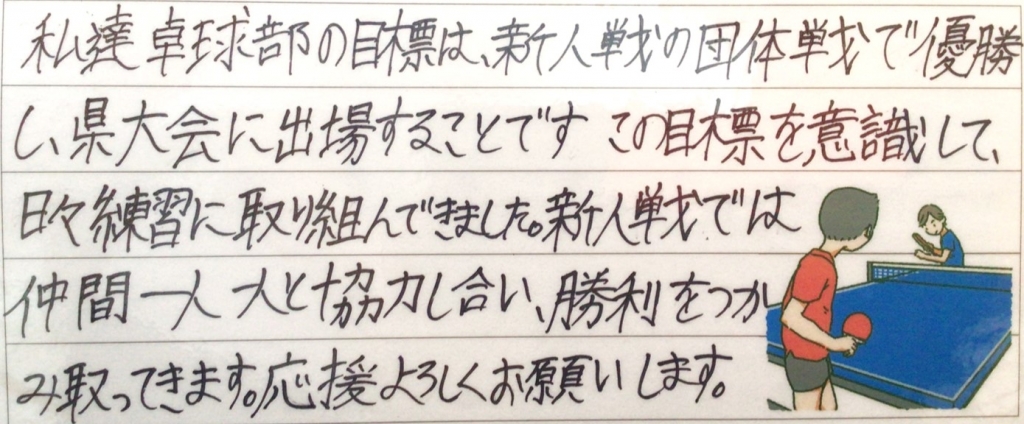 私達卓球部の目標は、新人戦の団体戦で優勝
し、県大会に出場することです この目標を意識して、
日々練習に取り組んできました。新人戦では
仲間一人一人と協力し合い、勝利をつか
み取ってきます。応援よろしくお願いします。